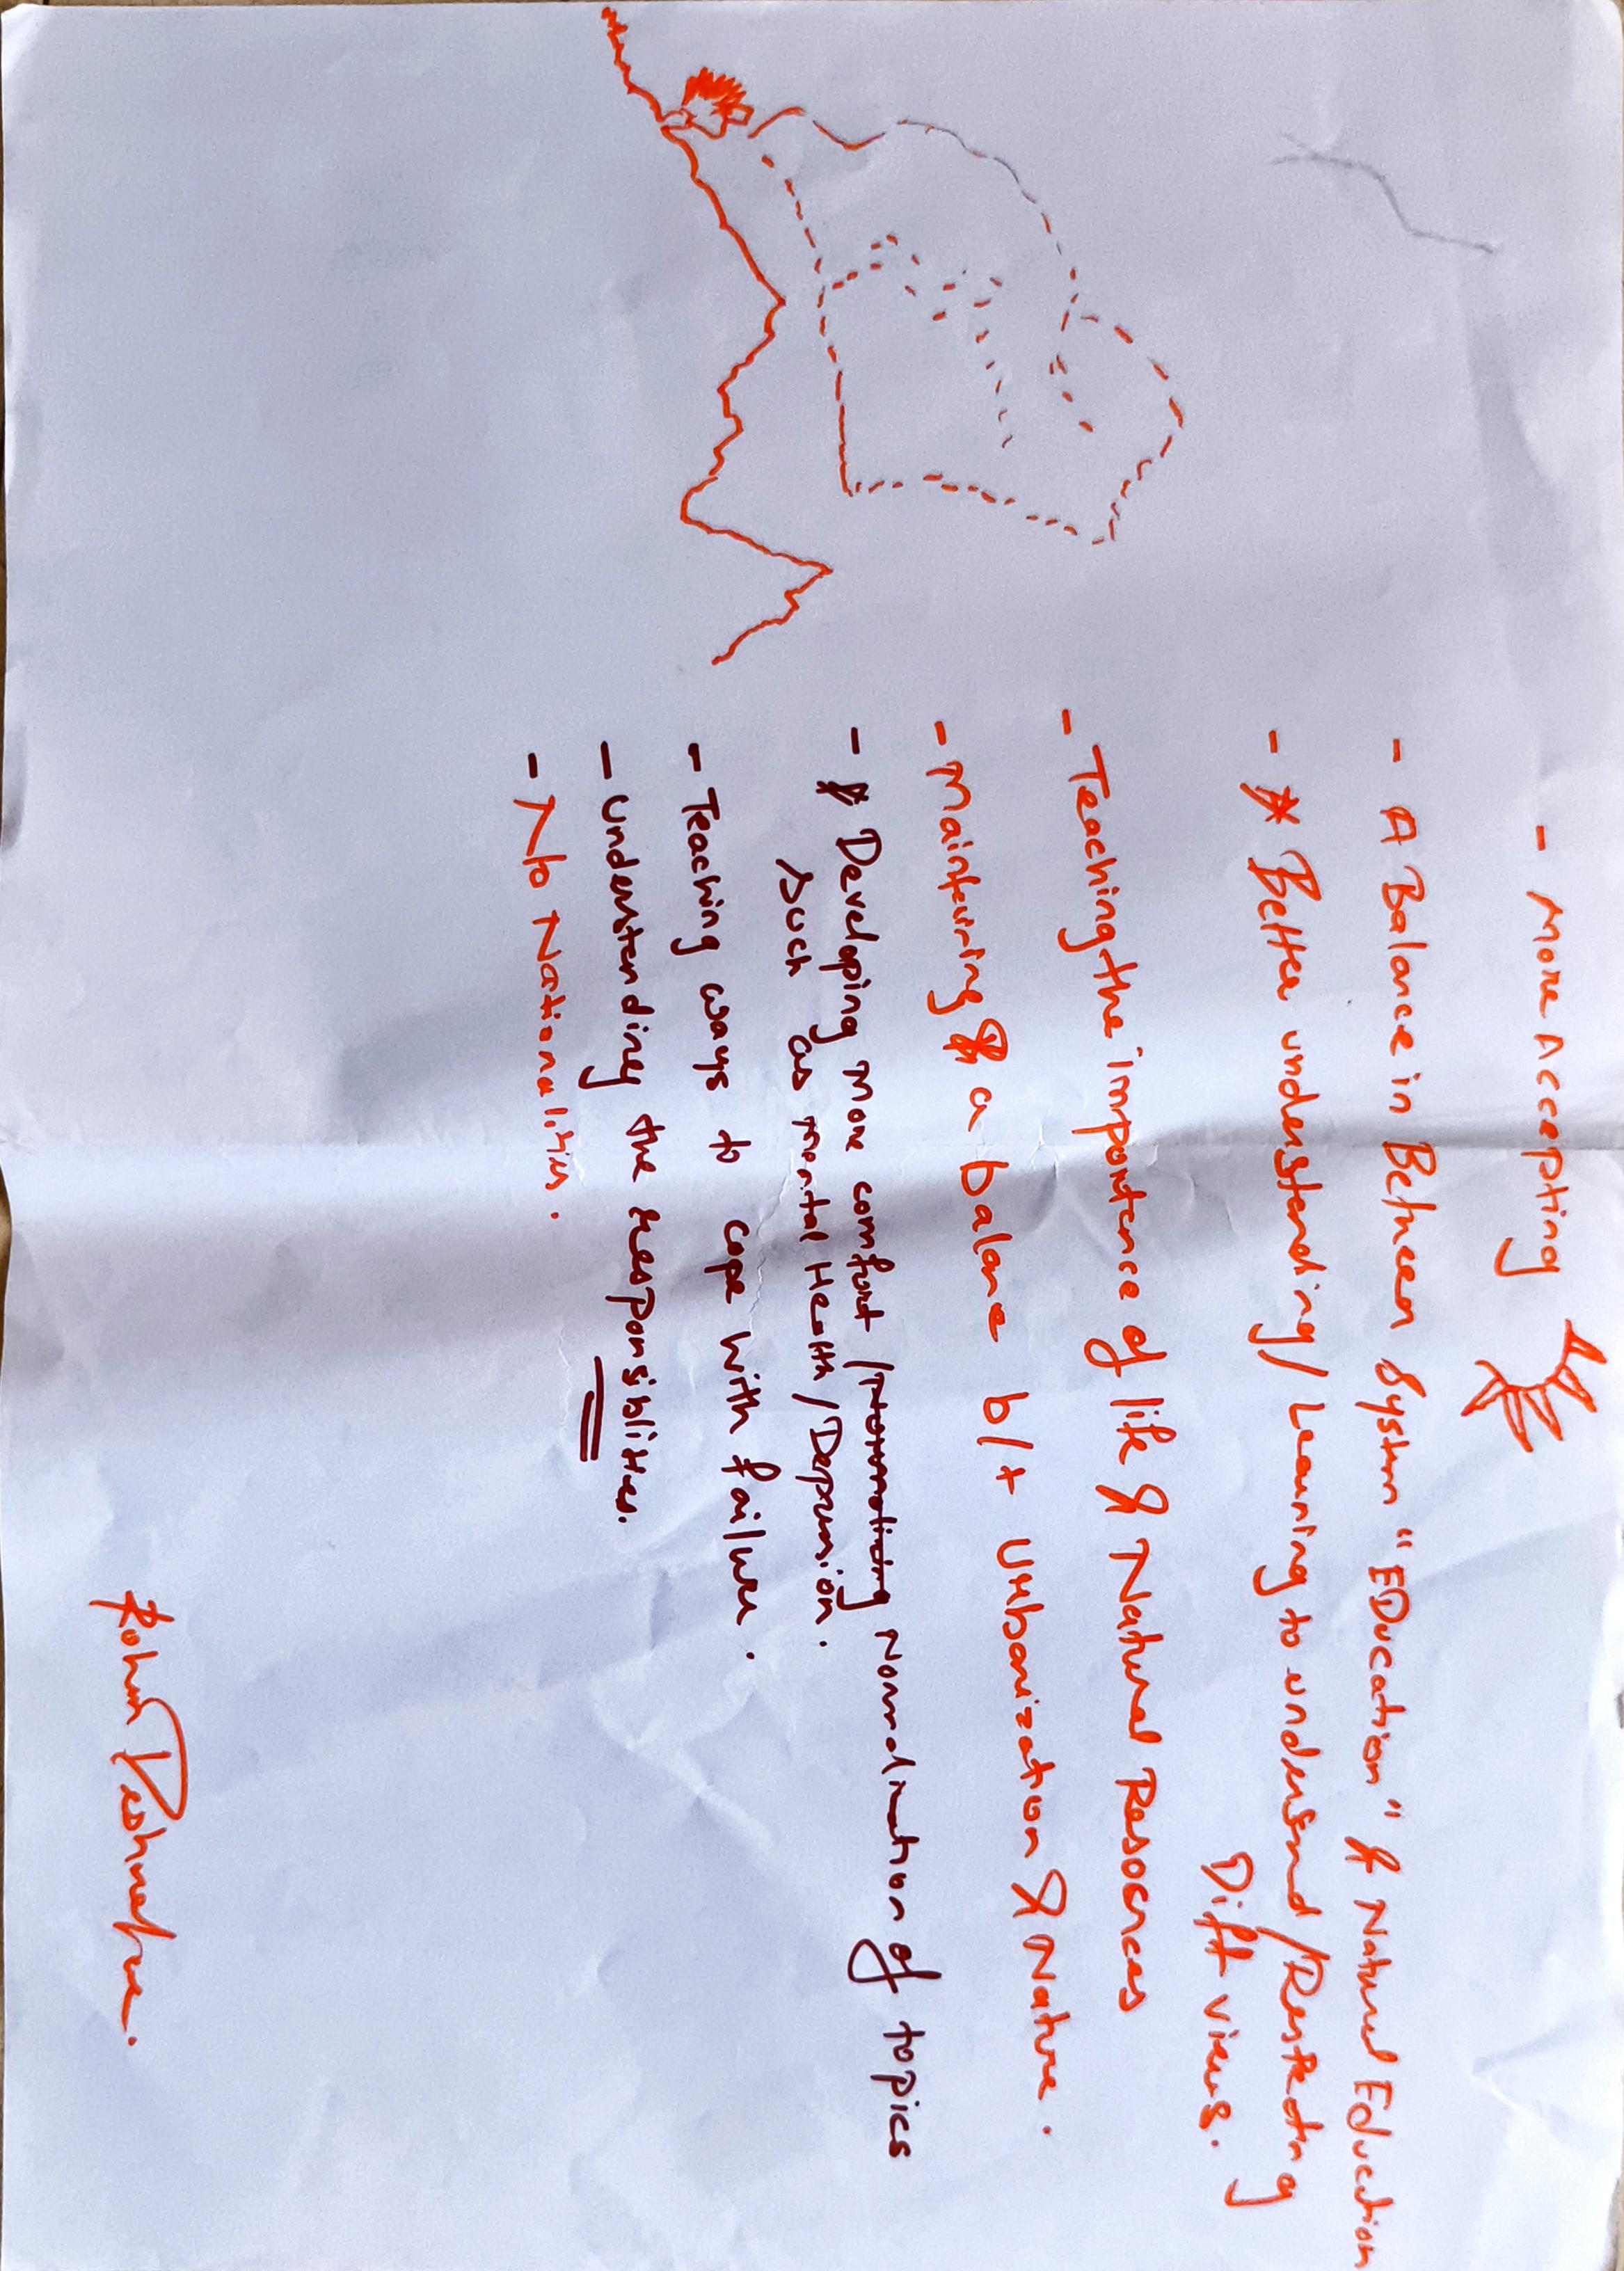 - More Accepting
- A Balance in Between System "EDucation" & Natural Education
- Better understanding/Learning to understand/Respecting
Diff views.
- Teaching the importance of life & Natural Resources
- Maintaining a balance b/t Urbanization & Nature.
- Developing more comfort / Normalization of topics
such as mental Health/Depression.
- Teaching ways to cope with failure.
- Understanding the responsiblities.
- No Nationalities.
Rohan Deshmukh.